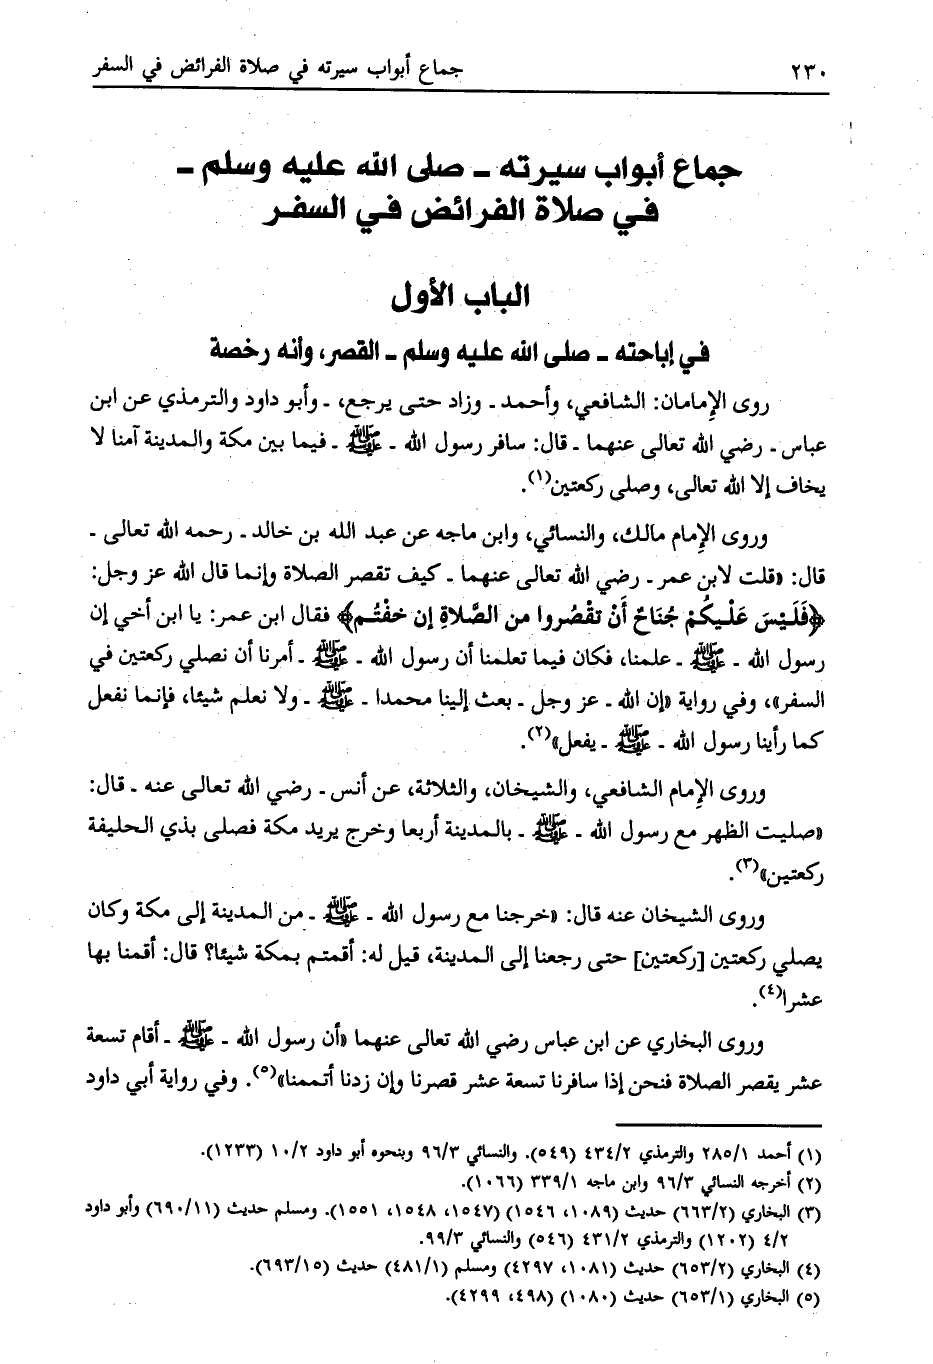 ٢٣٠ جماع أبواب سيرته في صلاة الفرائض في السفر
جماع أبواب سيرته ـ صلى الله عليه وسلم ـ
في صلاة الفرائض في السفر
الباب الأول
في إباحته ـ صلى الله عليه وسلم ـ القصر، وأنه رخصة
روى الإمامان: الشافعي، وأحمد ـ وزاد حتى يرجع، ـ وأبو داود والترمذي عن ابن
عباس ـ رضي الله تعالى عنهما ـ قال: سافر رسول الله ـ ﷺ ـ فيما بين مكة والمدينة آمنا لا
يخاف إلا الله تعالى، وصلى ركعتين(١).
وروى الإمام مالك، والنسائي، وابن ماجه عن عبد الله بن خالد ـ رحمه الله تعالى ـ
قال: «قلت لابن عمر ـ رضي الله تعالى عنهما ـ كيف تقصر الصلاة وإنما قال الله عز وجل:
﴿فَلَيْسَ عَلَيكُمْ جُنَاحٌ أَنْ تقْصُروا من الصَّلاةِ إن خفْتُم﴾ فقال ابن عمر: يا ابن أخي إن
رسول الله ـ ﷺ ـ علمنا، فكان فيما تعلمنا أن رسول الله ـ ﷺ ـ أمرنا أن نصلي ركعتين في
السفر»، وفي رواية «إن الله ـ عز وجل ـ بعث إلينا محمدا ـ ﷺ ـ ولا نعلم شيئا، فإنما نفعل
كما رأينا رسول الله ـ ﷺ ـ يفعل»(٢).
وروى الإمام الشافعي، والشيخان، والثلاثة، عن أنس ـ رضي الله تعالى عنه ـ قال:
«صليت الظهر مع رسول الله ـ ﷺ ـ بالمدينة أربعا وخرج يريد مكة فصلى بذي الحليفة
ركعتين»(٣).
وروى الشيخان عنه قال: «خرجنا مع رسول الله ـ ﷺ ـ من المدينة إلى مكة وكان
يصلي ركعتين [ركعتين] حتى رجعنا إلى المدينة، قيل له: أقمتم بمكة شيئا؟ قال: أقمنا بها
عشرا(٤).
وروى البخاري عن ابن عباس رضي الله تعالى عنهما «أن رسول الله ـ ﷺ ـ أقام تسعة
عشر يقصر الصلاة فنحن إذا سافرنا تسعة عشر قصرنا وإن زدنا أتممنا»(٥). وفي رواية أبي داود
(١) أحمد ٢٨٥/١ والترمذي ٤٣٤/٢ (٥٤٩). والنسائي ٩٦/٣ وبنحوه أبو داود ١٠/٢ (١٢٣٣).
(٢) أخرجه النسائي ٩٦/٣ وابن ماجه ٣٣٩/١ (١٠٦٦).
(٣) البخاري (٦٦٣/٢) حديث (١٠٨٩، ١٥٤٦) (١٥٤٧، ١٥٤٨، ١٥٥١). ومسلم حديث (٦٩٠/١١) وأبو داود
٤/٢ (١٢٠٢) والترمذي ٤٣١/٢ (٥٤٦) والنسائي ٩٩/٣.
(٤) البخاري (٦٥٣/٢) حديث (١٠٨١، ٤٢٩٧) ومسلم (٤٨١/١) حديث (٦٩٣/١٥).
(٥) البخاري (٦٥٣/١) حديث (١٠٨٠) (٤٩٨، ٤٢٩٩).